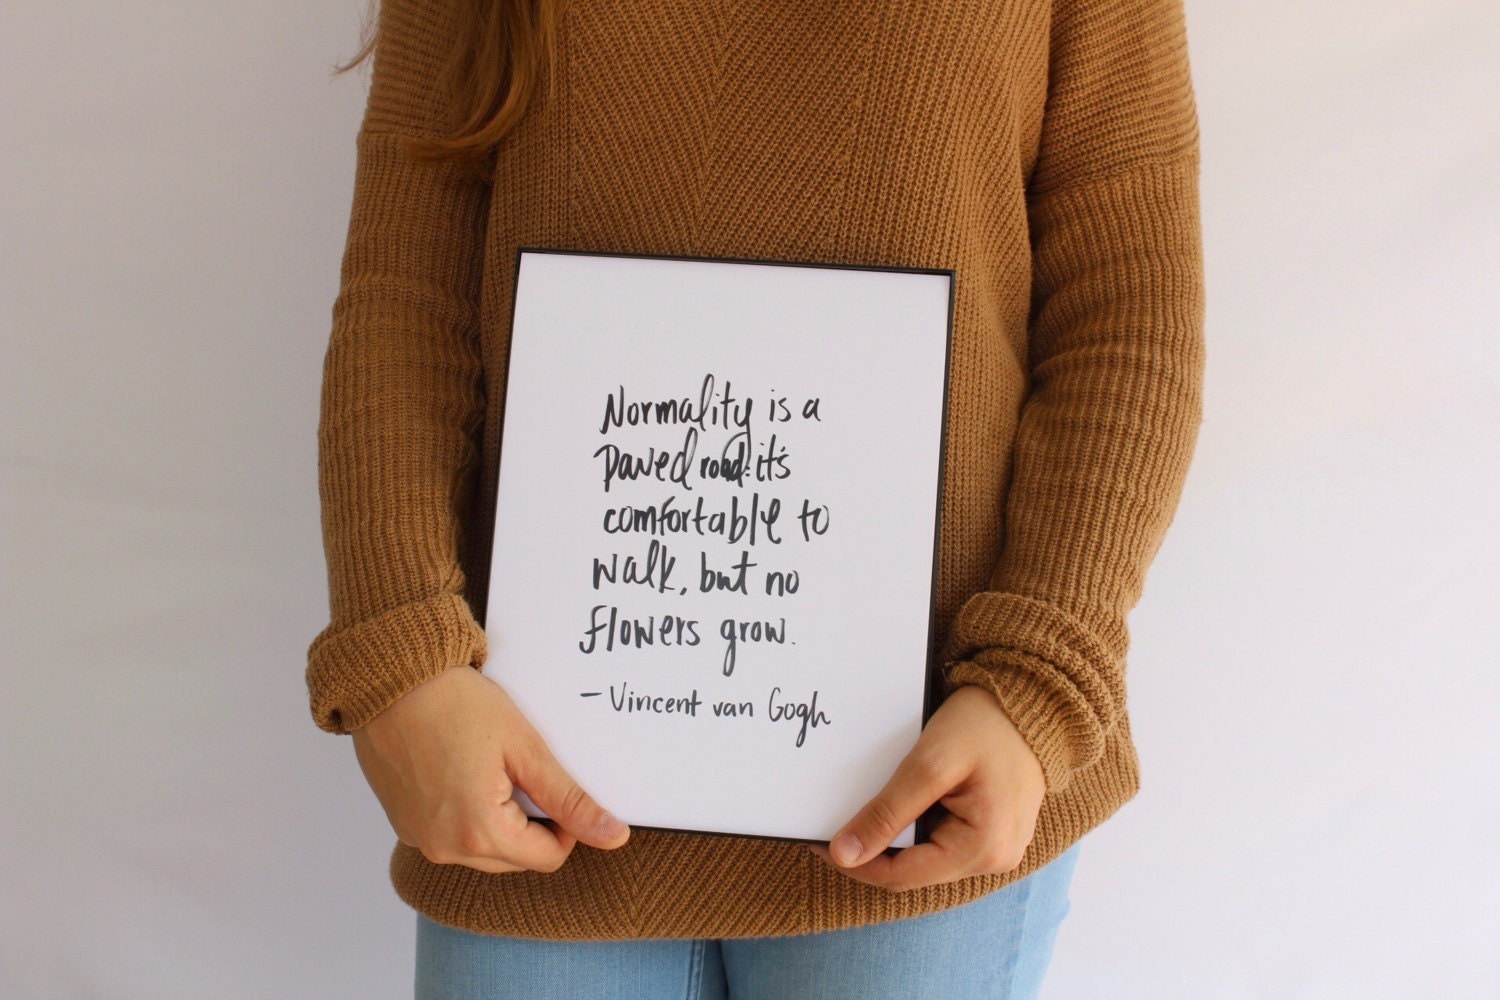 Normality is a
paved road: it's
comfortable to
walk, but no
flowers grow.
– Vincent van Gogh